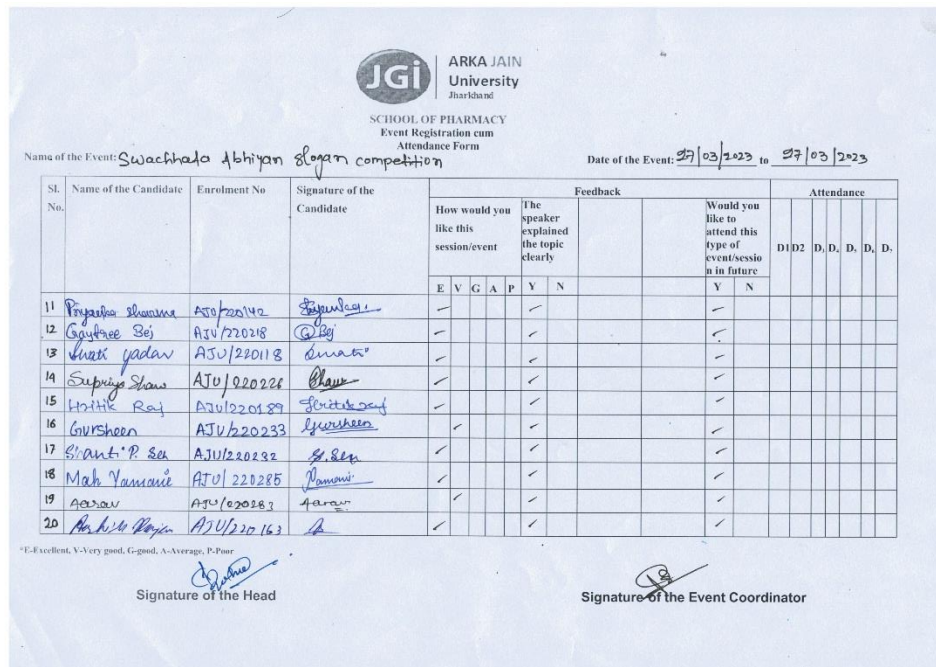 JGi
ARKA JAIN
University
Jharkhand
SCHOOL OF PHARMACY
Event Registration cum
Attendance Form
Name of the Event: Swachhata Abhiyan Slogan competition Date of the Event: 27/03/2023 to 27/03/2023
Sl. No. Name of the Candidate Enrolment No Signature of the Candidate Feedback Attendance
How would you like this session/event The speaker explained the topic clearly Would you like to attend this type of event/session in future D1 D2 D, D, D, D, D,
E V G A P Y N Y N
11 Priyanka Sharma AJU/220142 Priyanka
12 Gaytree Bej AJU/220218 G Bej
13 Swati yadav AJU/220118 Swati
14 Supriya Shaw AJU/220226 Shaw
15 Hritik Raj AJU/220189 Hritik Raj
16 Gursheen AJU/220233 Gursheen
17 Shanti P. Sen AJU/220232 S. Sen
18 Mah Yamanie AJU/220285 Yamani
19 Aarav AJU/220283 Aarav
20 AJU/220163
*E-Excellent, V-Very good, G-good, A-Average, P-Poor
Signature of the Head Signature of the Event Coordinator